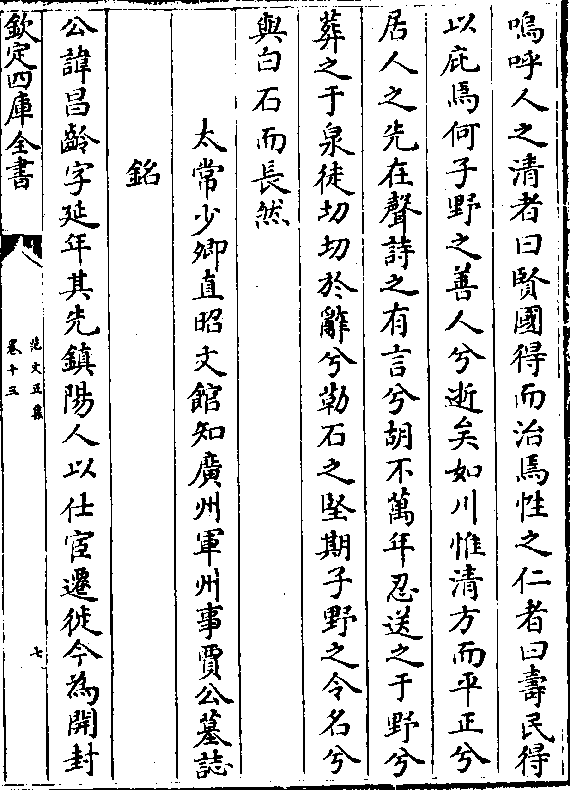 嗚呼人之清者曰賢國得而治焉性之仁者曰壽民得
以庇焉何子野之善人兮逝矣如川惟清方而平正兮
居人之先在聲詩之有言兮胡不萬年忍送之于野兮
葬之于泉徒切切於辭兮勒石之堅期子野之令名兮
與白石而長然
太常少卿直昭文館知廣州軍州事賈公墓誌
銘
公諱昌齡字延年其先鎮陽人以仕宦遷徙今為開封
欽定四庫全書
范文正集
卷十三
七